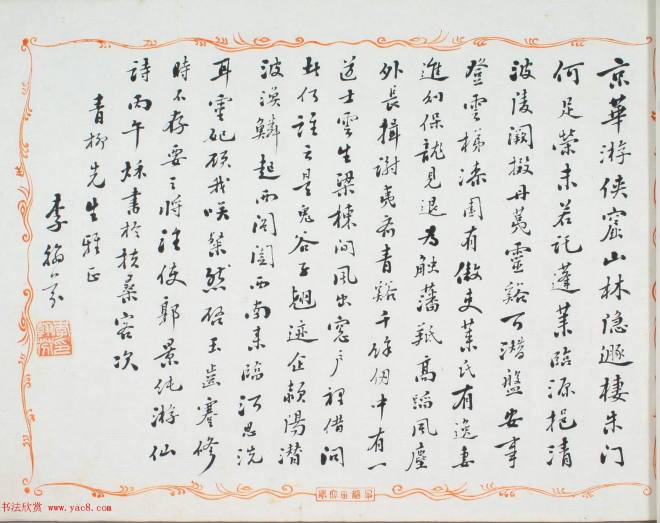 京華游俠窟山林隱遯棲朱門
何足榮未若託蓬萊臨源挹清
波陵岡掇丹荑靈谿可潛盤安事
登雲梯漆園有傲吏萊氏有逸妻
進則保龍見退為觸藩羝高蹈風塵
外長揖謝夷齊青谿千餘仞中有一
道士雲生梁棟間風出窗戶裡借問
此何誰云是鬼谷子翹迹企潁陽潛
波渙鱗起西閶闔西南来臨河思洗
耳靈妃顧我咲粲然啟玉齒蹇修
時不存要之將誰使郭景純游仙
詩丙午秌書於扶桑客次
青柳先生雅正
李翰芬
书法欣赏
www.yac8.com